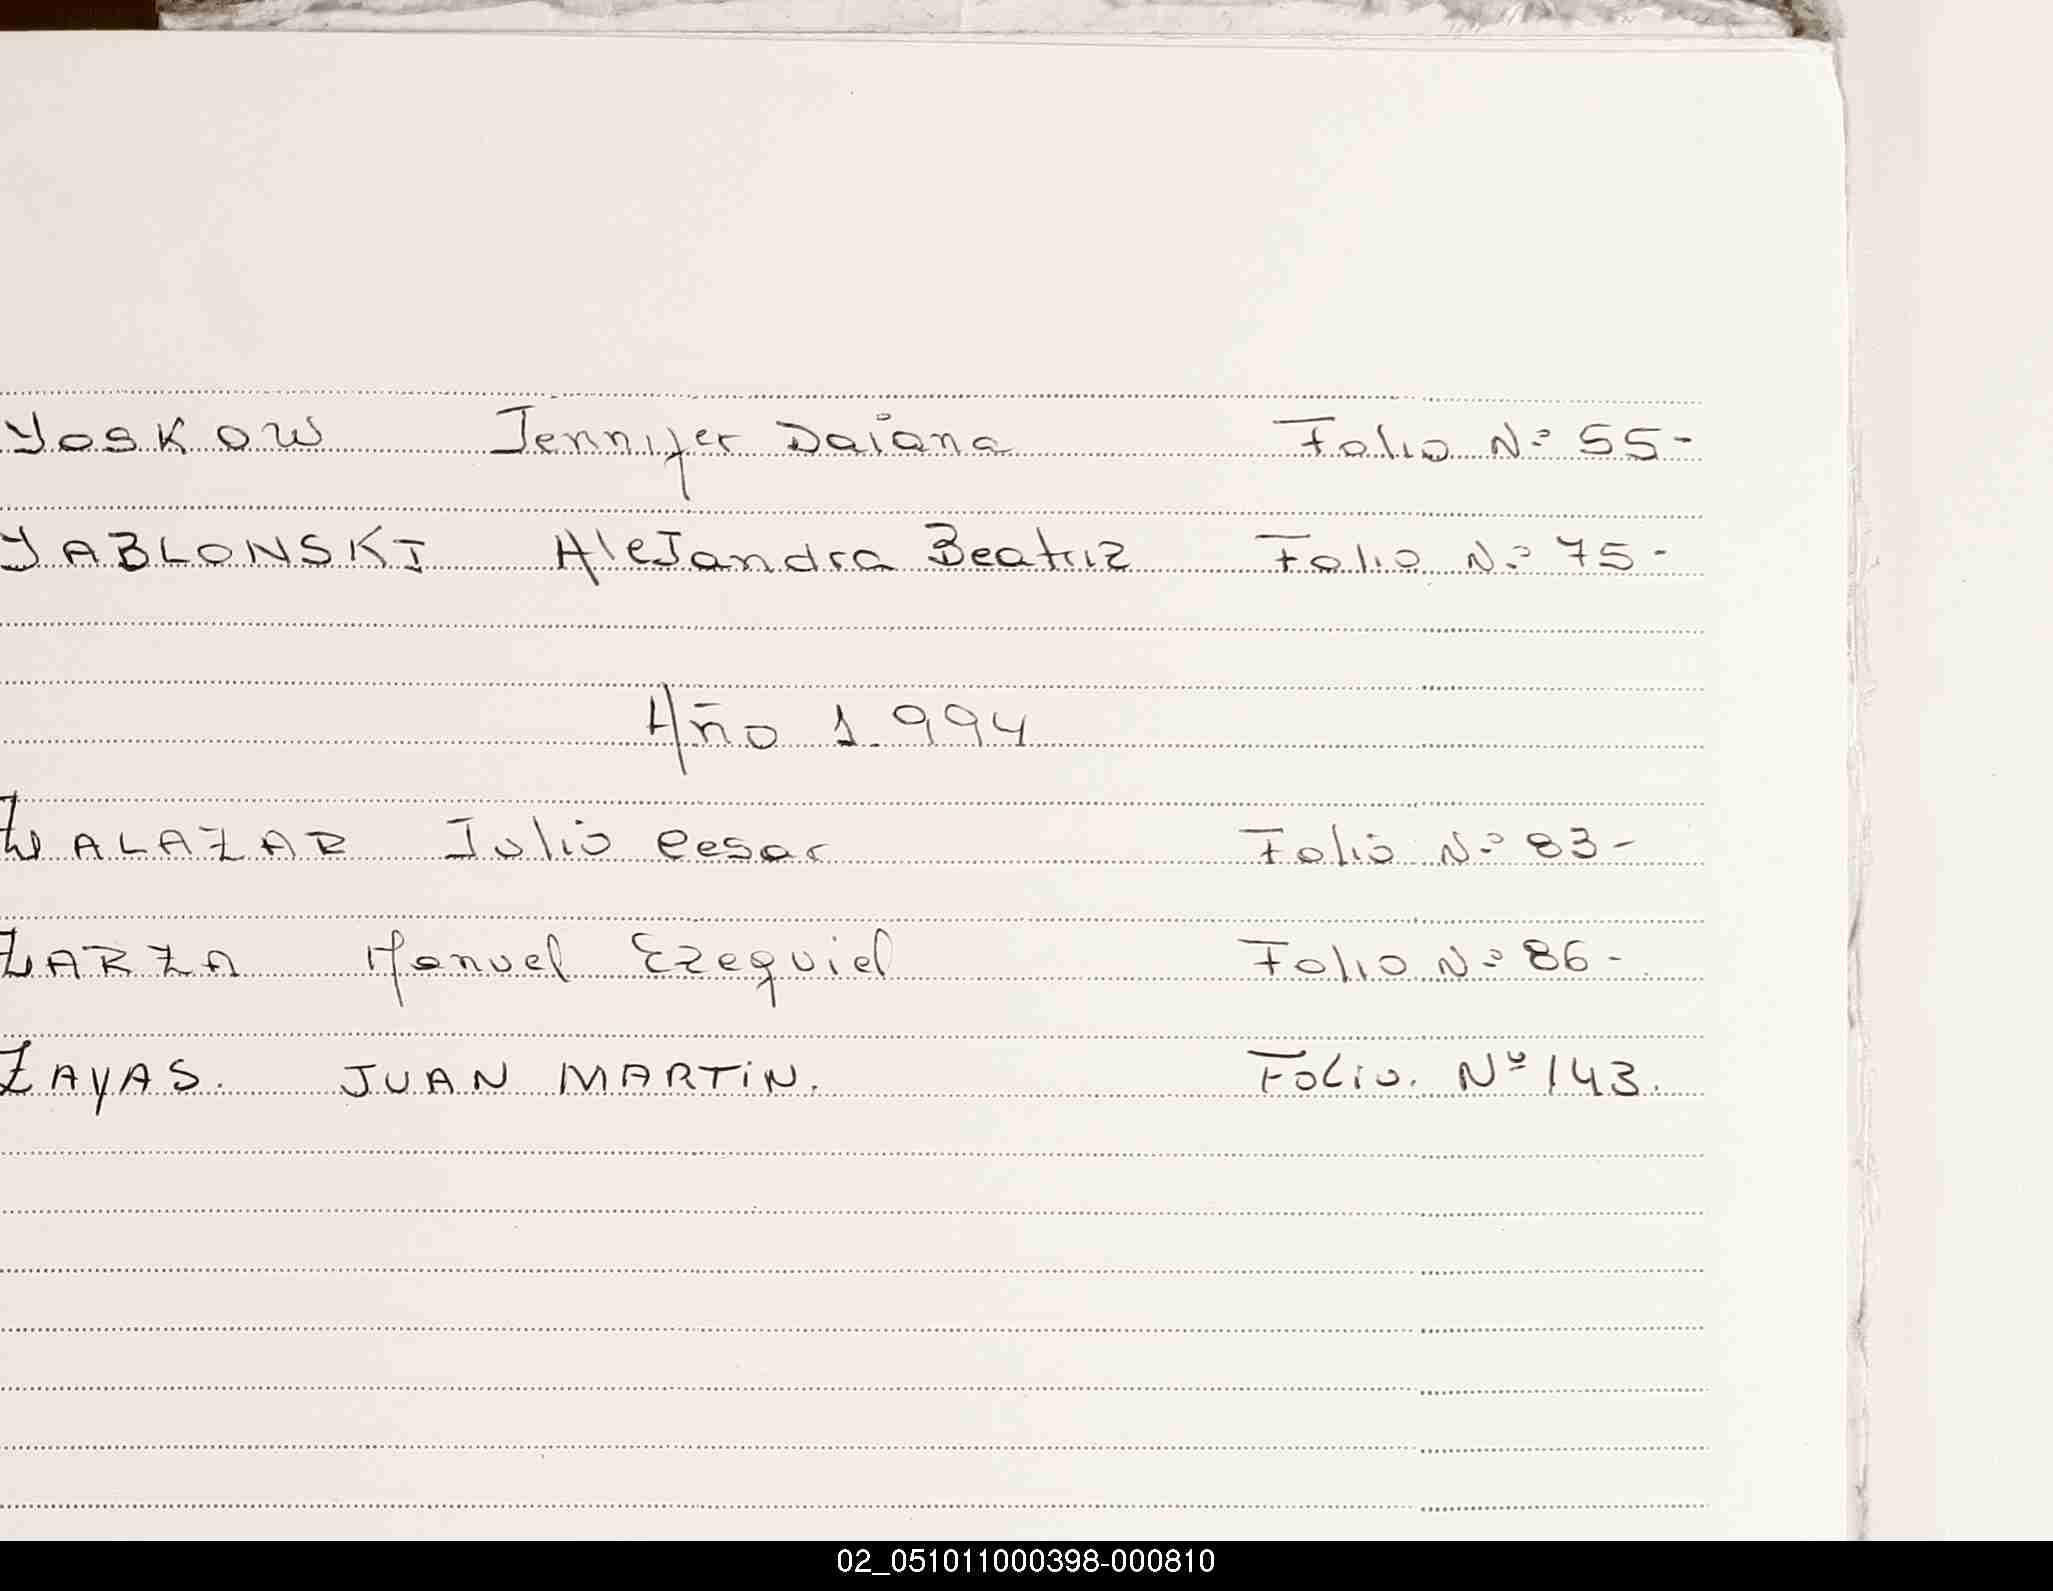 YOSKOW Jennifer Daiana Folio Nº 55-
YABLONSKI AleJandra Beatriz Folio Nº 75-
Año 1.994
ZALAZAR Julio Cesar Folio Nº 83-
ZARZA Manuel Ezequiel Folio Nº 86-
ZAYAS. JUAN MARTIN. Folio. Nº 143.
02_051011000398-000810